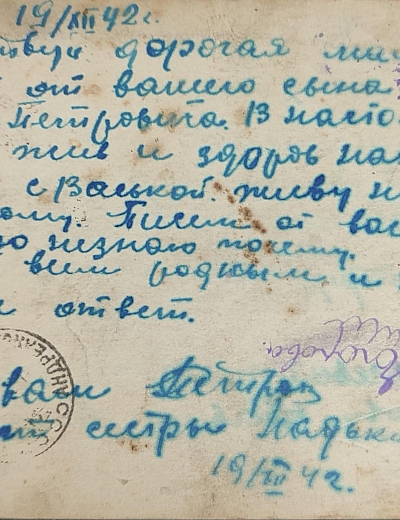 19/XII 42г.
твуй дорогая ма
от вашего сына
Петровича. В насто
жив и здоров на
с Васькой. живу н
ому. Писем от ва
ю незнаю почему.
всем родным и
ответ.
вам Петров
сестры Надьк
19/XII 42.